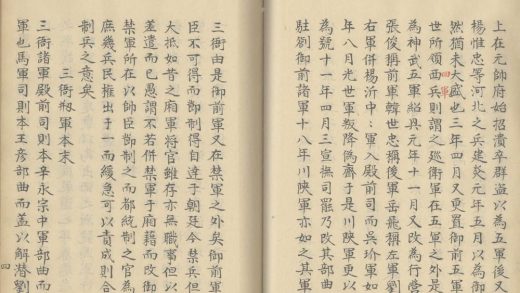 上在元帥府始招潰卒群盜以為五軍後又
楊惟忠等河北之兵建炎元年五月以為御
然猶未大盛也三年四月又更置御前五軍
四軍
世所領西兵則謂之巡衛軍在五軍之外是
為神武五軍紹興元年十一月又改為行營
張俊稱前軍韓世忠稱後軍岳飛稱左軍劉
右軍併楊沂中軍入殿前司而吳玠軍如
年八月光世軍叛降偽齊于是川陝軍更以
為號十一年四月三宣撫司罷乃改其部曲
駐劄御前諸軍十八年川陝軍亦如之其軍
三衙由是御前軍又在禁軍之外矣御前軍
臣不可得而節制得自達于朝廷今禁兵但
大抵如昔之廂軍將官雖存亦無職事但以
差遣而已愚謂不若併禁軍于廂藉而改御
禁軍所在以帥臣節制之而都統制之官為
庶幾兵民權出于一而緩急可以責成則合
制兵之意矣
三衙廢軍本末
三衙諸軍殿前司則本辛永宗中軍部曲而
軍也馬軍司則本王彥部曲而益以解潛劉
四